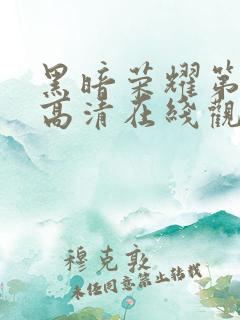 黑暗荣耀第
高清在线觀
穆克敦
未经同意禁止转载